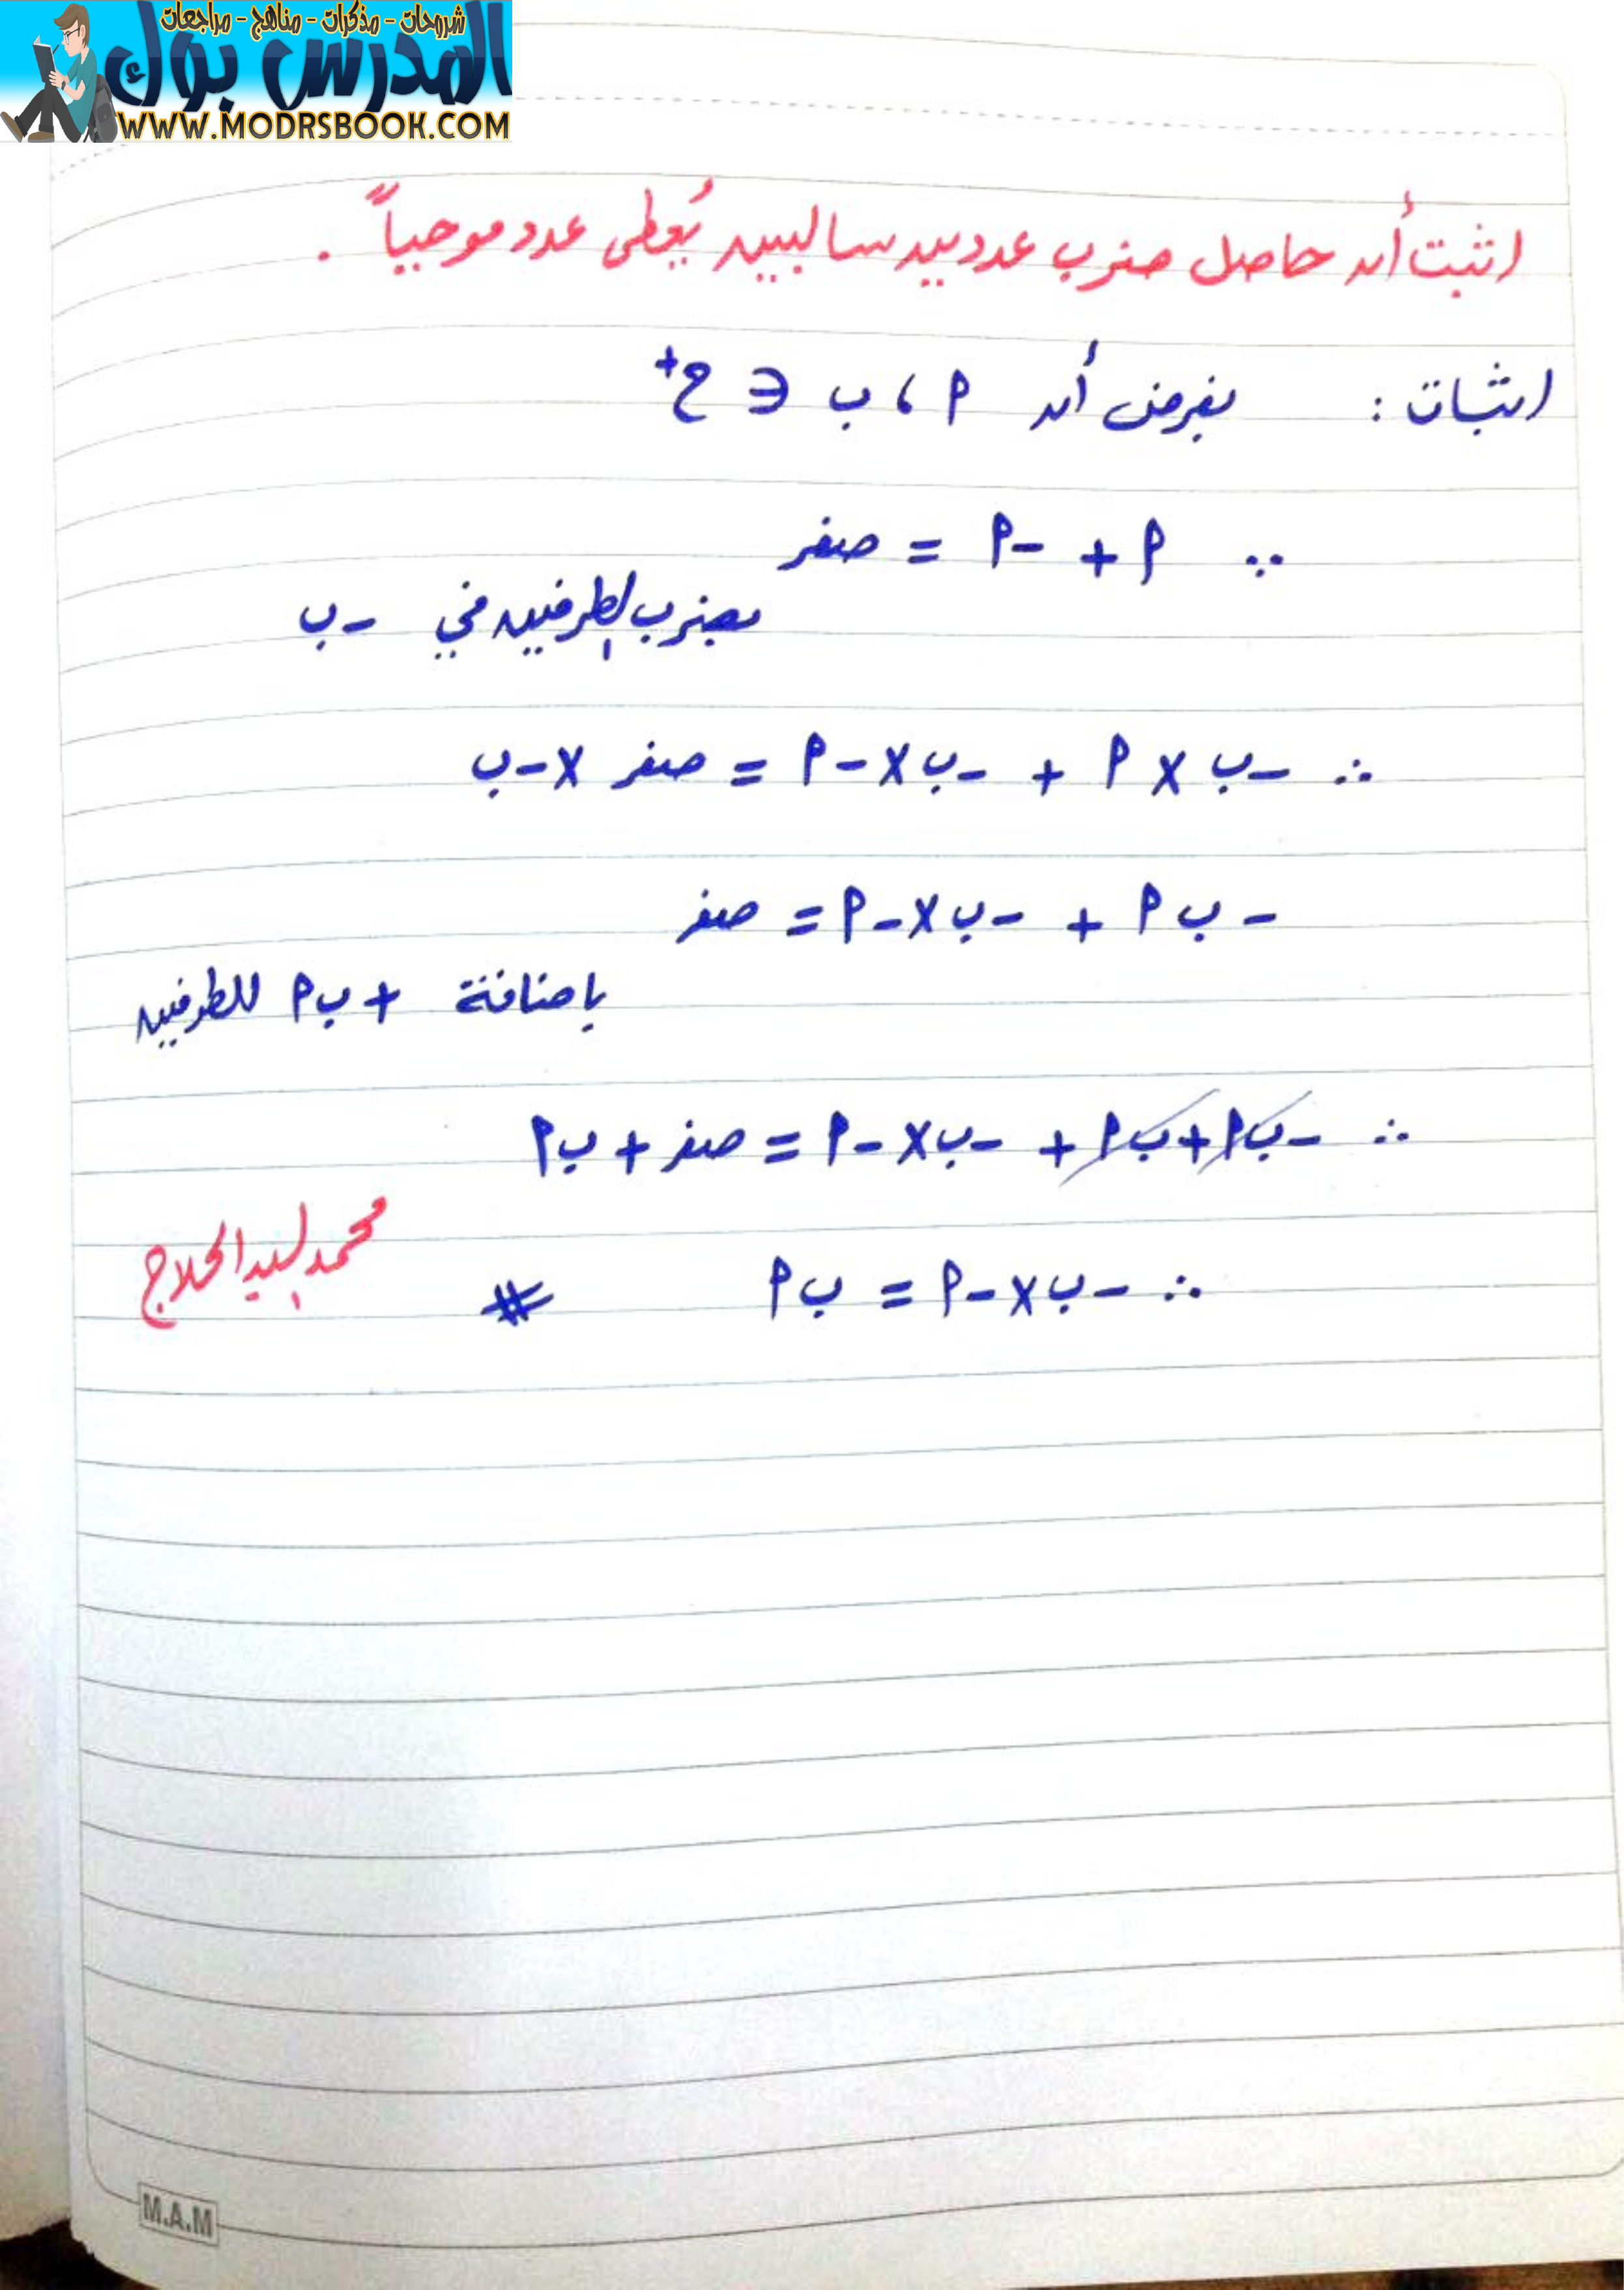 شروحات - مذكرات - مناهج - مراجعات
المدرس بوك
WWW.MODRSBOOK.COM
اثبت أن حاصل ضرب عددين سالبين يُعطى عدد موجباً .
اثبات : بفرض أن ٩ ، ب ∈ ح+
∵ ٩ + -٩ = صفر
بضرب الطرفين في -ب
∴ -ب × ٩ + -ب × -٩ = صفر × -ب
-ب ٩ + -ب × -٩ = صفر
بإضافة + ب٩ للطرفين
∴ -ب٩ + ب٩ + -ب × -٩ = صفر + ب٩
∴ -ب × -٩ = ب ٩ #
محمد السيد الحلاج
M.A.M